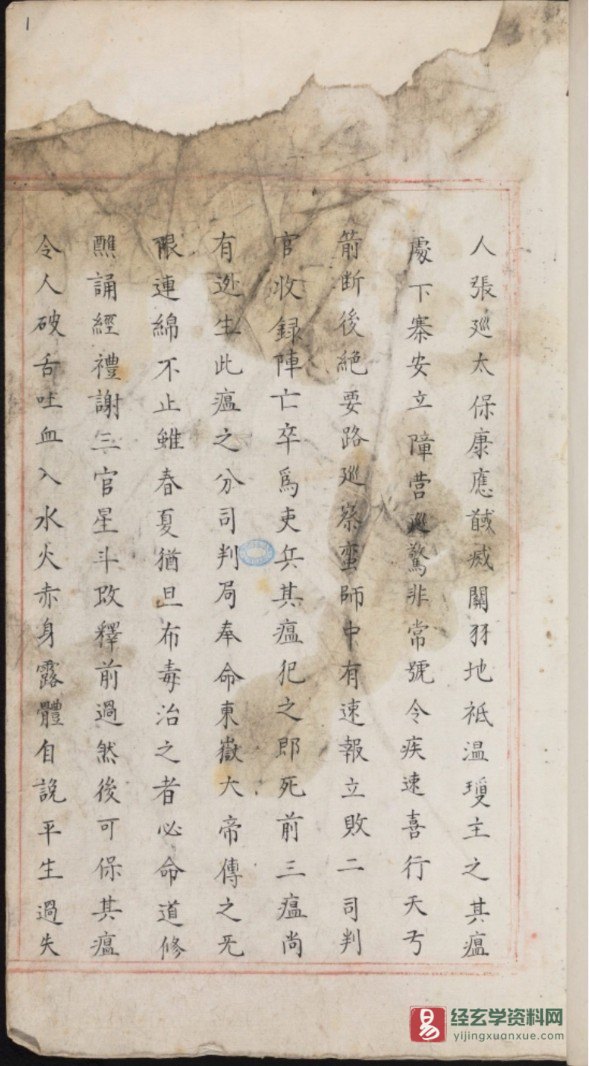 1
人張廵太保康應馘威關羽地祇温瓊主之其瘟
處下寨安立障营廵驚非常號令疾速喜行天丂
箭断後絶要路廵察蛮師中有速報立敗二司判
官收録陣亡卒爲吏兵其瘟犯之即死前三瘟尚
有迯生此瘟之分司判局奉命東嶽大帝傳之旡
限連綿不止雖春夏猶旦布毒治之者必命道修
醮誦經禮謝三官星斗改釋前過然後可保其瘟
令人破舌吐血入水火赤身露體自説平生過失
易
经玄学资料网
yijingxuanxue.com